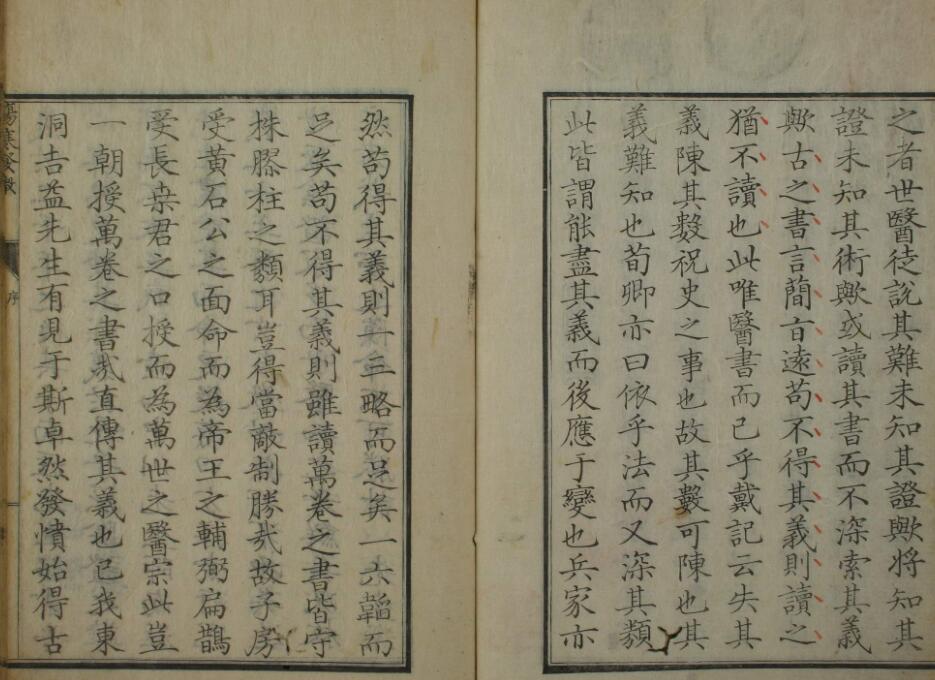 之者世醫徒説其難未知其證歟將知其
證未知其術歟或讀其書而不深索其義
歟古之書言簡旨遠苟不得其義則讀之
猶不讀也此唯醫書而已乎戴記云失其
義陳其數祝史之事也故其數可陳也其
義難知也荀卿亦曰依乎法而又深其類
此皆謂能盡其義而後應于變也兵家亦
然苟得其義則一三略而足矣一六韜而
足矣苟不得其義則雖讀萬卷之書皆守
株膠柱之類耳豈得當敵制勝哉故子房
受黃石公之面命而為帝王之輔弼扁鵲
受長桑君之口授而為萬世之醫宗此豈
一朝授萬卷之書哉直傳其義也已我東
洞吉益先生有見于斯卓然發憤始得古
序